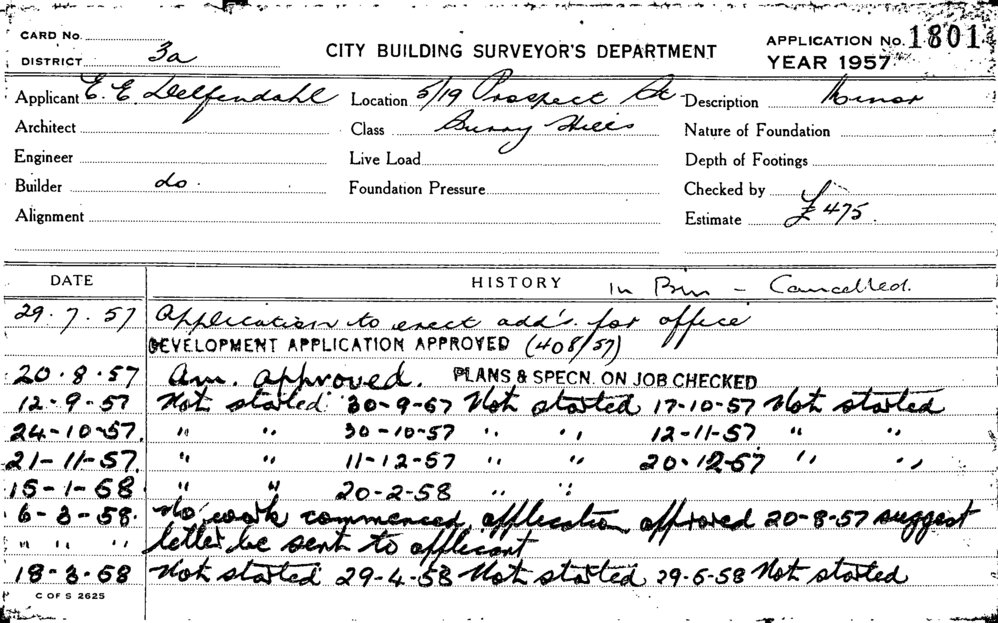 CARD No.
DISTRICT 3a
CITY BUILDING SURVEYOR'S DEPARTMENT
APPLICATION No. 1801
YEAR 1957
Applicant E. E. Delfendahl Location 5/19 Prospect St Description Minor
Architect Class Surry Hills Nature of Foundation
Engineer Live Load Depth of Footings
Builder do. Foundation Pressure Checked by
Alignment Estimate £475.
DATE HISTORY In Bin - Cancelled.
29.7.57 Application to erect add's. for office
DEVELOPMENT APPLICATION APPROVED (408/57)
20.8.57 Am. approved. PLANS & SPECN. ON JOB CHECKED
12-9-57 Not started 30-9-57 Not started 17-10-57 Not started
24-10-57. " " 30-10-57 " " 12-11-57 " "
21-11-57. " " 11-12-57 " " 20.12-57 " "
15-1-58 " " 20-2-58 " "
6-3-58. No work commenced, application approved 20-8-57 suggest
" " " letter be sent to applicant
18-3-58 Not started 29-4-58 Not started 29-5-58 Not started
C OF S 2625